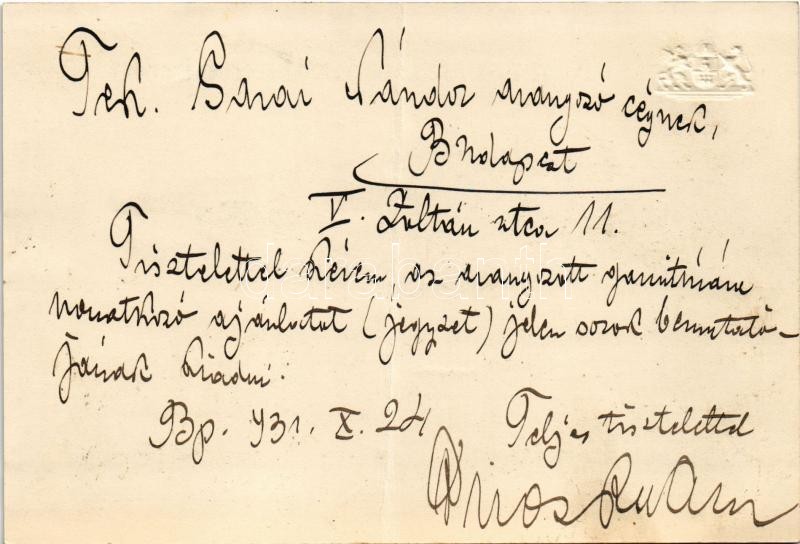 Tek. Garai Nándor aranyozó cégnek,
Budapest
V. Zoltán utca 11.
Tisztelettel kérem, az aranyozott garnitúrára
vonatkozó ajánlatot (jegyzet) jelen sorok bemutató-
jának kiadni.
Bp. 931. X. 24
Teljes tisztelettel